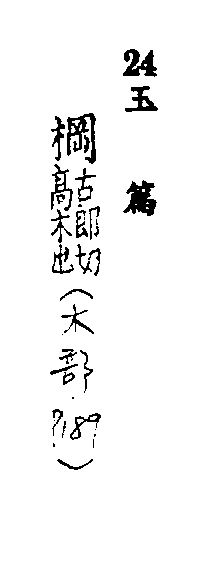 24玉篇
棡古郎切高木也(木部P189)